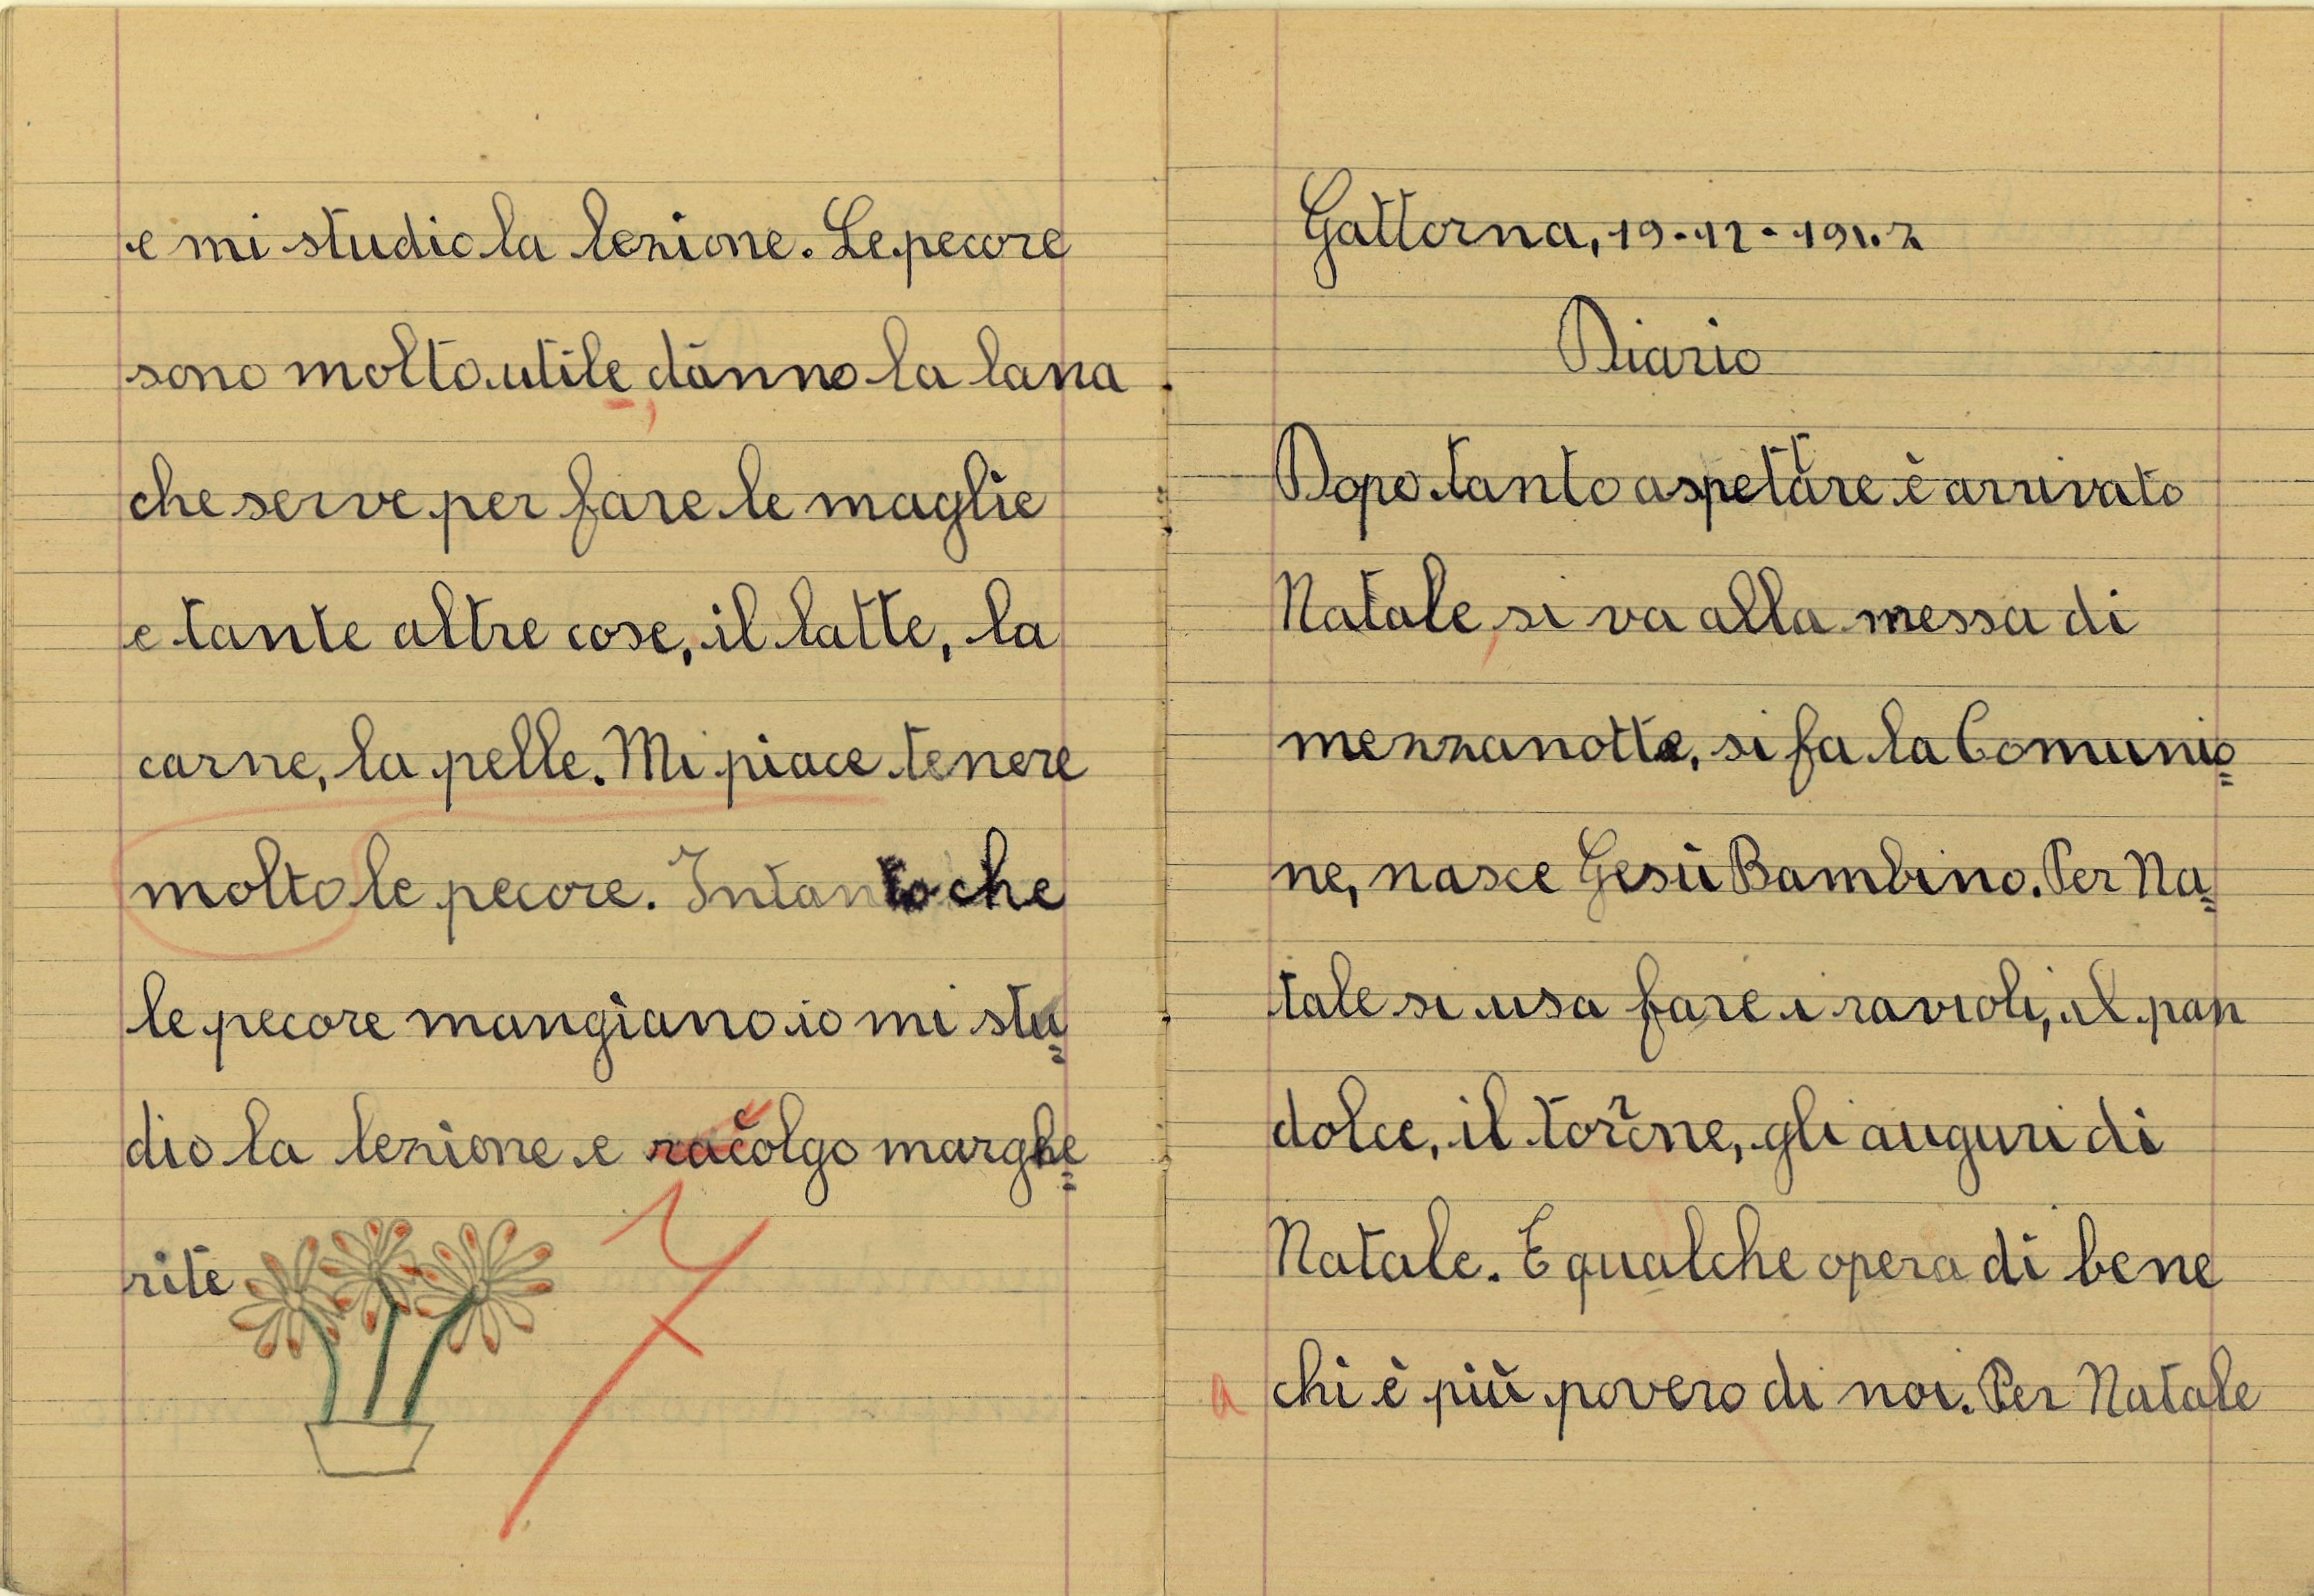 e mi studio la lezione. Le pecore
sono molto utile dànno la lana
che serve per fare le maglie
e tante altre cose, il latte, la
carne, la pelle. Mi piace tenere
molto le pecore. Intanto che
le pecore mangiano io mi stu=
dio la lezione e raccolgo marghe=
rite
7
Gattorna, 19-12-1942
Diario
Dopo tanto aspettare è arrivato
Natale, si va alla messa di
mezzanotte, si fa la Comunio=
ne, nasce Gesù Bambino. Per Na=
tale si usa fare i ravioli, il pan
dolce, il torrone, gli auguri di
Natale. E qualche opera di bene
a chi è più povero di noi. Per Natale